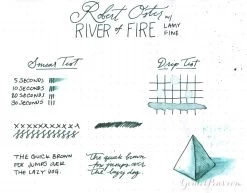 Robert Oster w/ LAMY
RIVER of FIRE FINE
Smear Test
Drip Test
5 SECONDS
10 SECONDS
20 SECONDS
30 SECONDS
THE QUICK BROWN
FOX JUMPS OVER
THE LAZY DOG.
The quick brown
fox jumps over
the lazy dog